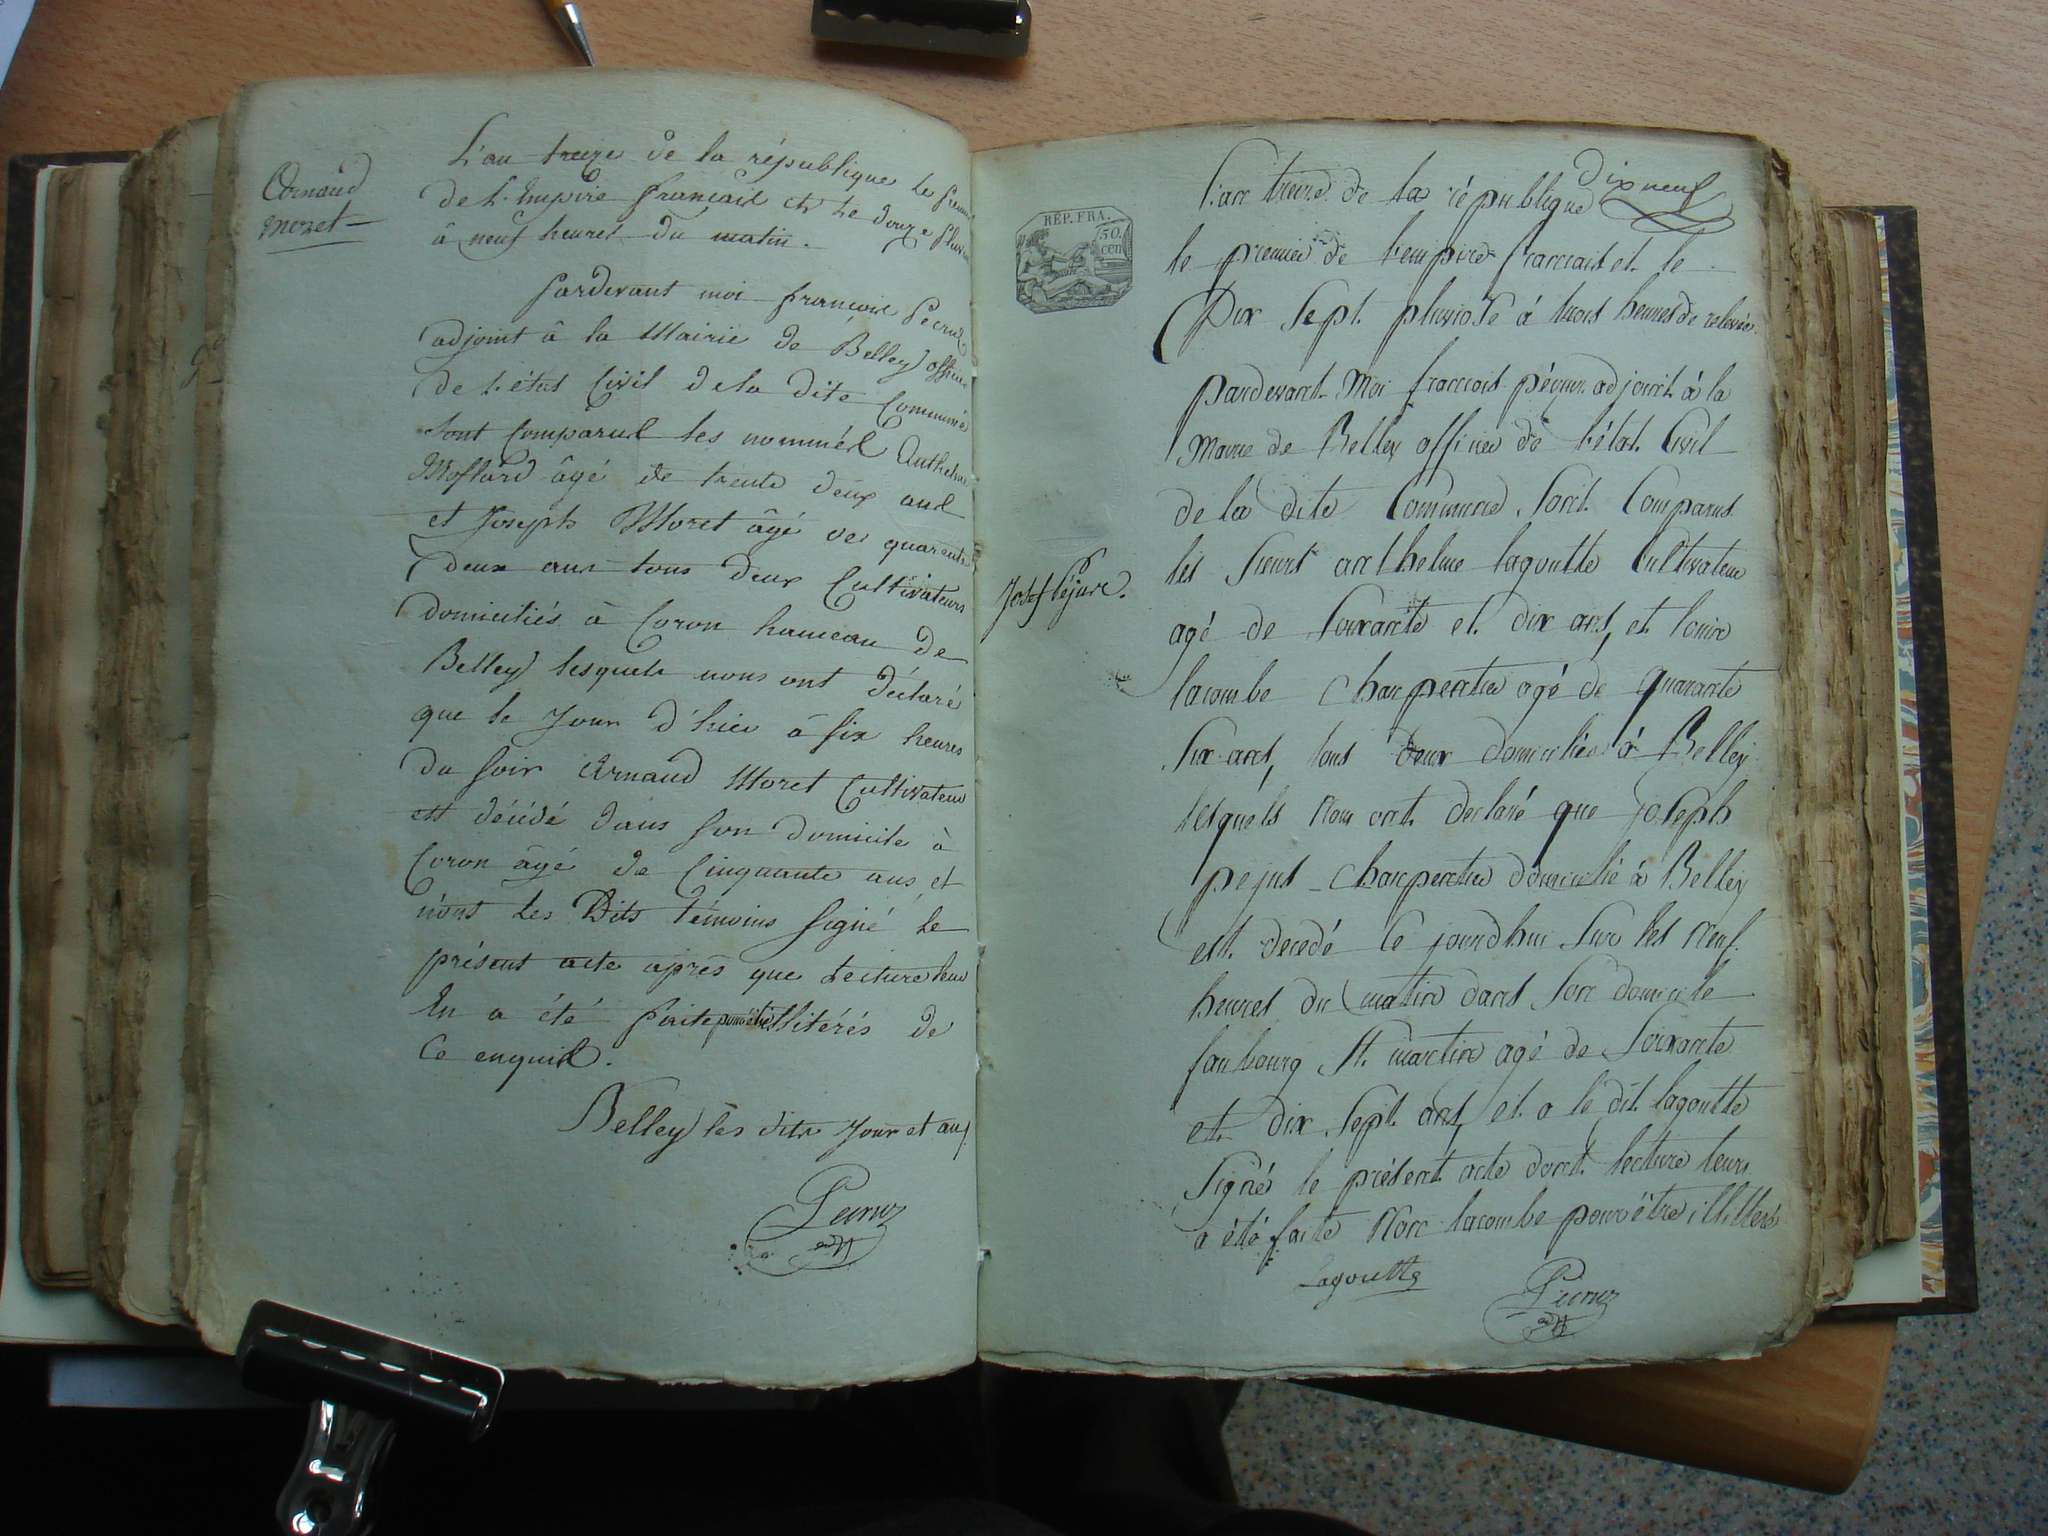 Arnaud
moret
L'an treize de la république le premier
de L'Empire français et Le douze Pluviose
à neuf heures du matin.
Pardevant moi françois Pecruz
adjoint à la Mairie de Belley officier
de L'état Civil de la dite Commune
sont Comparus les nommés Anthelme
Moffard âgé de trente deux ans
et Joseph Moret âgé de quarante
deux ans tous deux Cultivateurs
domiciliés à Coron hameau de
Belley lesquels nous ont déclaré
que le Jour d'hier à six heures
du soir Arnaud Moret Cultivateur
est décédé dans son domicile à
Coron âgé de Cinquante ans et
n'ont les Dits témoins signé le
présent acte après que Lecture leur
En a été faite pour être illitérés de
Ce enquis.
Belley les dits Jour et an.
Pecruz
adjt
dix neuf
RÉP. FRA.
50.
cen
Josef Péjus.
l'an treize de la république
le premier de l'empire français et le
Dix Sept pluviose à trois heures de relevée.
pardevant Moi françois pécruz adjoint à la
Mairie de Belley officier de l'état Civil
de la dite Commune Sont Comparus
les Sieurs anthelme lagoutte Cultivateur
agé de Soixante et dix ans, et louis
lacombe charpentier agé de quarante
Six ans, tous deux domiciliés à Belley
lesquels Nous ont declaré que joseph
pejus charpentier domicilié à Belley
est decedé Ce jourdhui Sur les Neuf
heures du matin dans Son domicile
faubourg St. martin agé de Soixante
et dix Sept ans, et a le dit lagoutte
Signé le présent acte dont lecture leurs
a été faite Non lacombe pour être illitteré
Lagoutte
Pecruz
adjt